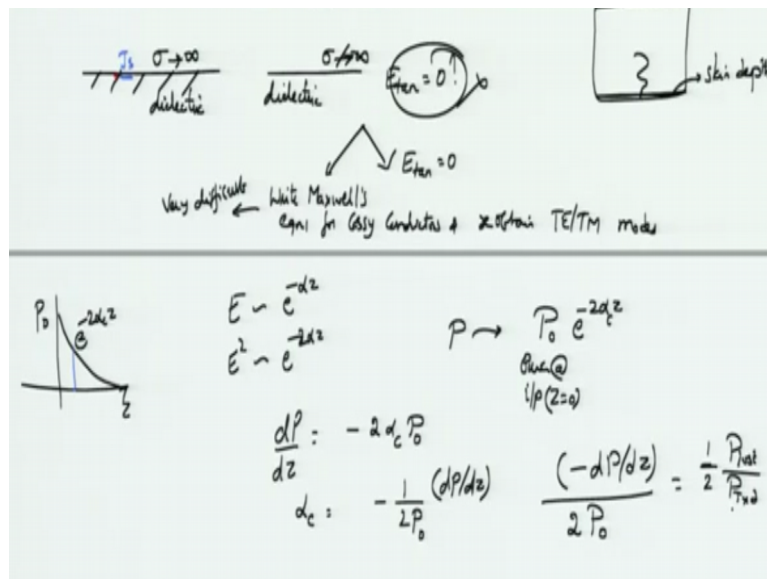 Js σ→∞
dielectric
σ↛∞
dielectric
Etan = 0 !
skin dept
Etan = 0
Very difficult ← Write Maxwell's
eqns for lossy conductors & obtain TE/TM modes
P₀
e^{-2αz}
z
E ~ e^{-αz}
E² ~ e^{-2αz}
P → P₀ e^{-2α_c z}
Power@
i/p (z=0)
dP/dz = - 2 α_c P₀
α_c = - 1/2P₀ (dP/dz)
(-dP/dz)/2P₀ = 1/2 P_lost/P_Txd